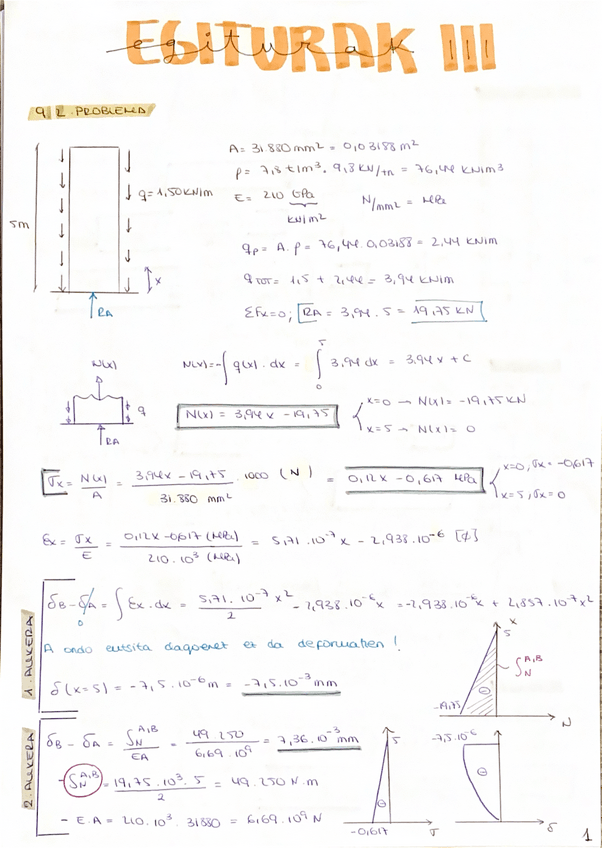 EGITURAK III
egiturak
9 2. PROBLEMA
A = 31.880 mm² = 0,03188 m²
ρ = 7,8 t/m³ . 9,8 kN/tn = 76,44 kN/m³
q = 1,50 kN/m
E = 210 GPa N/mm² = MPa
kN/m²
5m
q_p = A . ρ = 76,44 . 0,03188 = 2,44 kN/m
q_TOT = 1,5 + 2,44 = 3,94 kN/m
x
RA
ΣFx=0; RA = 3,94 . 5 = 19,75 kN
N(x)
N(x) = -∫ q(x) . dx = ∫₀⁵ 3,94 dx = 3,94 x + C
q
RA
N(x) = 3,94x - 19,75
x=0 → N(x) = -19,75 kN
x=5 → N(x) = 0
σx = N(x)/A = (3,94x - 19,75)/(31.880 mm²) . 1000 (N) = 0,12x - 0,617 MPa
x=0, σx = -0,617
x=5, σx = 0
εx = σx/E = (0,12x - 0,617 (MPa))/(210 . 10³ (MPa)) = 5,71 . 10⁻⁷ x - 2,938 . 10⁻⁶ [ɸ]
1. AUKERA
δB - δA = ∫ εx . dx = (5,71 . 10⁻⁷ x²)/2 - 2,938 . 10⁻⁶ x = -2,938 . 10⁻⁶ x + 2,857 . 10⁻⁷ x²
0
A ondo eutsita dagoenet ez da deformatzen !
δ(x=5) = -7,5 . 10⁻⁶ m = -7,5 . 10⁻³ mm
x
5
∫N A,B
⊖
-19,75
N
2. AUKERA
δB - δA = ∫N A,B / EA = 49.250 / 6,69 . 10⁹ = 7,36 . 10⁻³ mm
- ∫N A,B = (19,75 . 10³ . 5)/2 = 49.250 N.m
- E.A = 210 . 10³ . 31880 = 6,69 . 10⁹ N
5
⊖
-0,617
σ
-7,5.10⁻⁶
⊖
δ
1